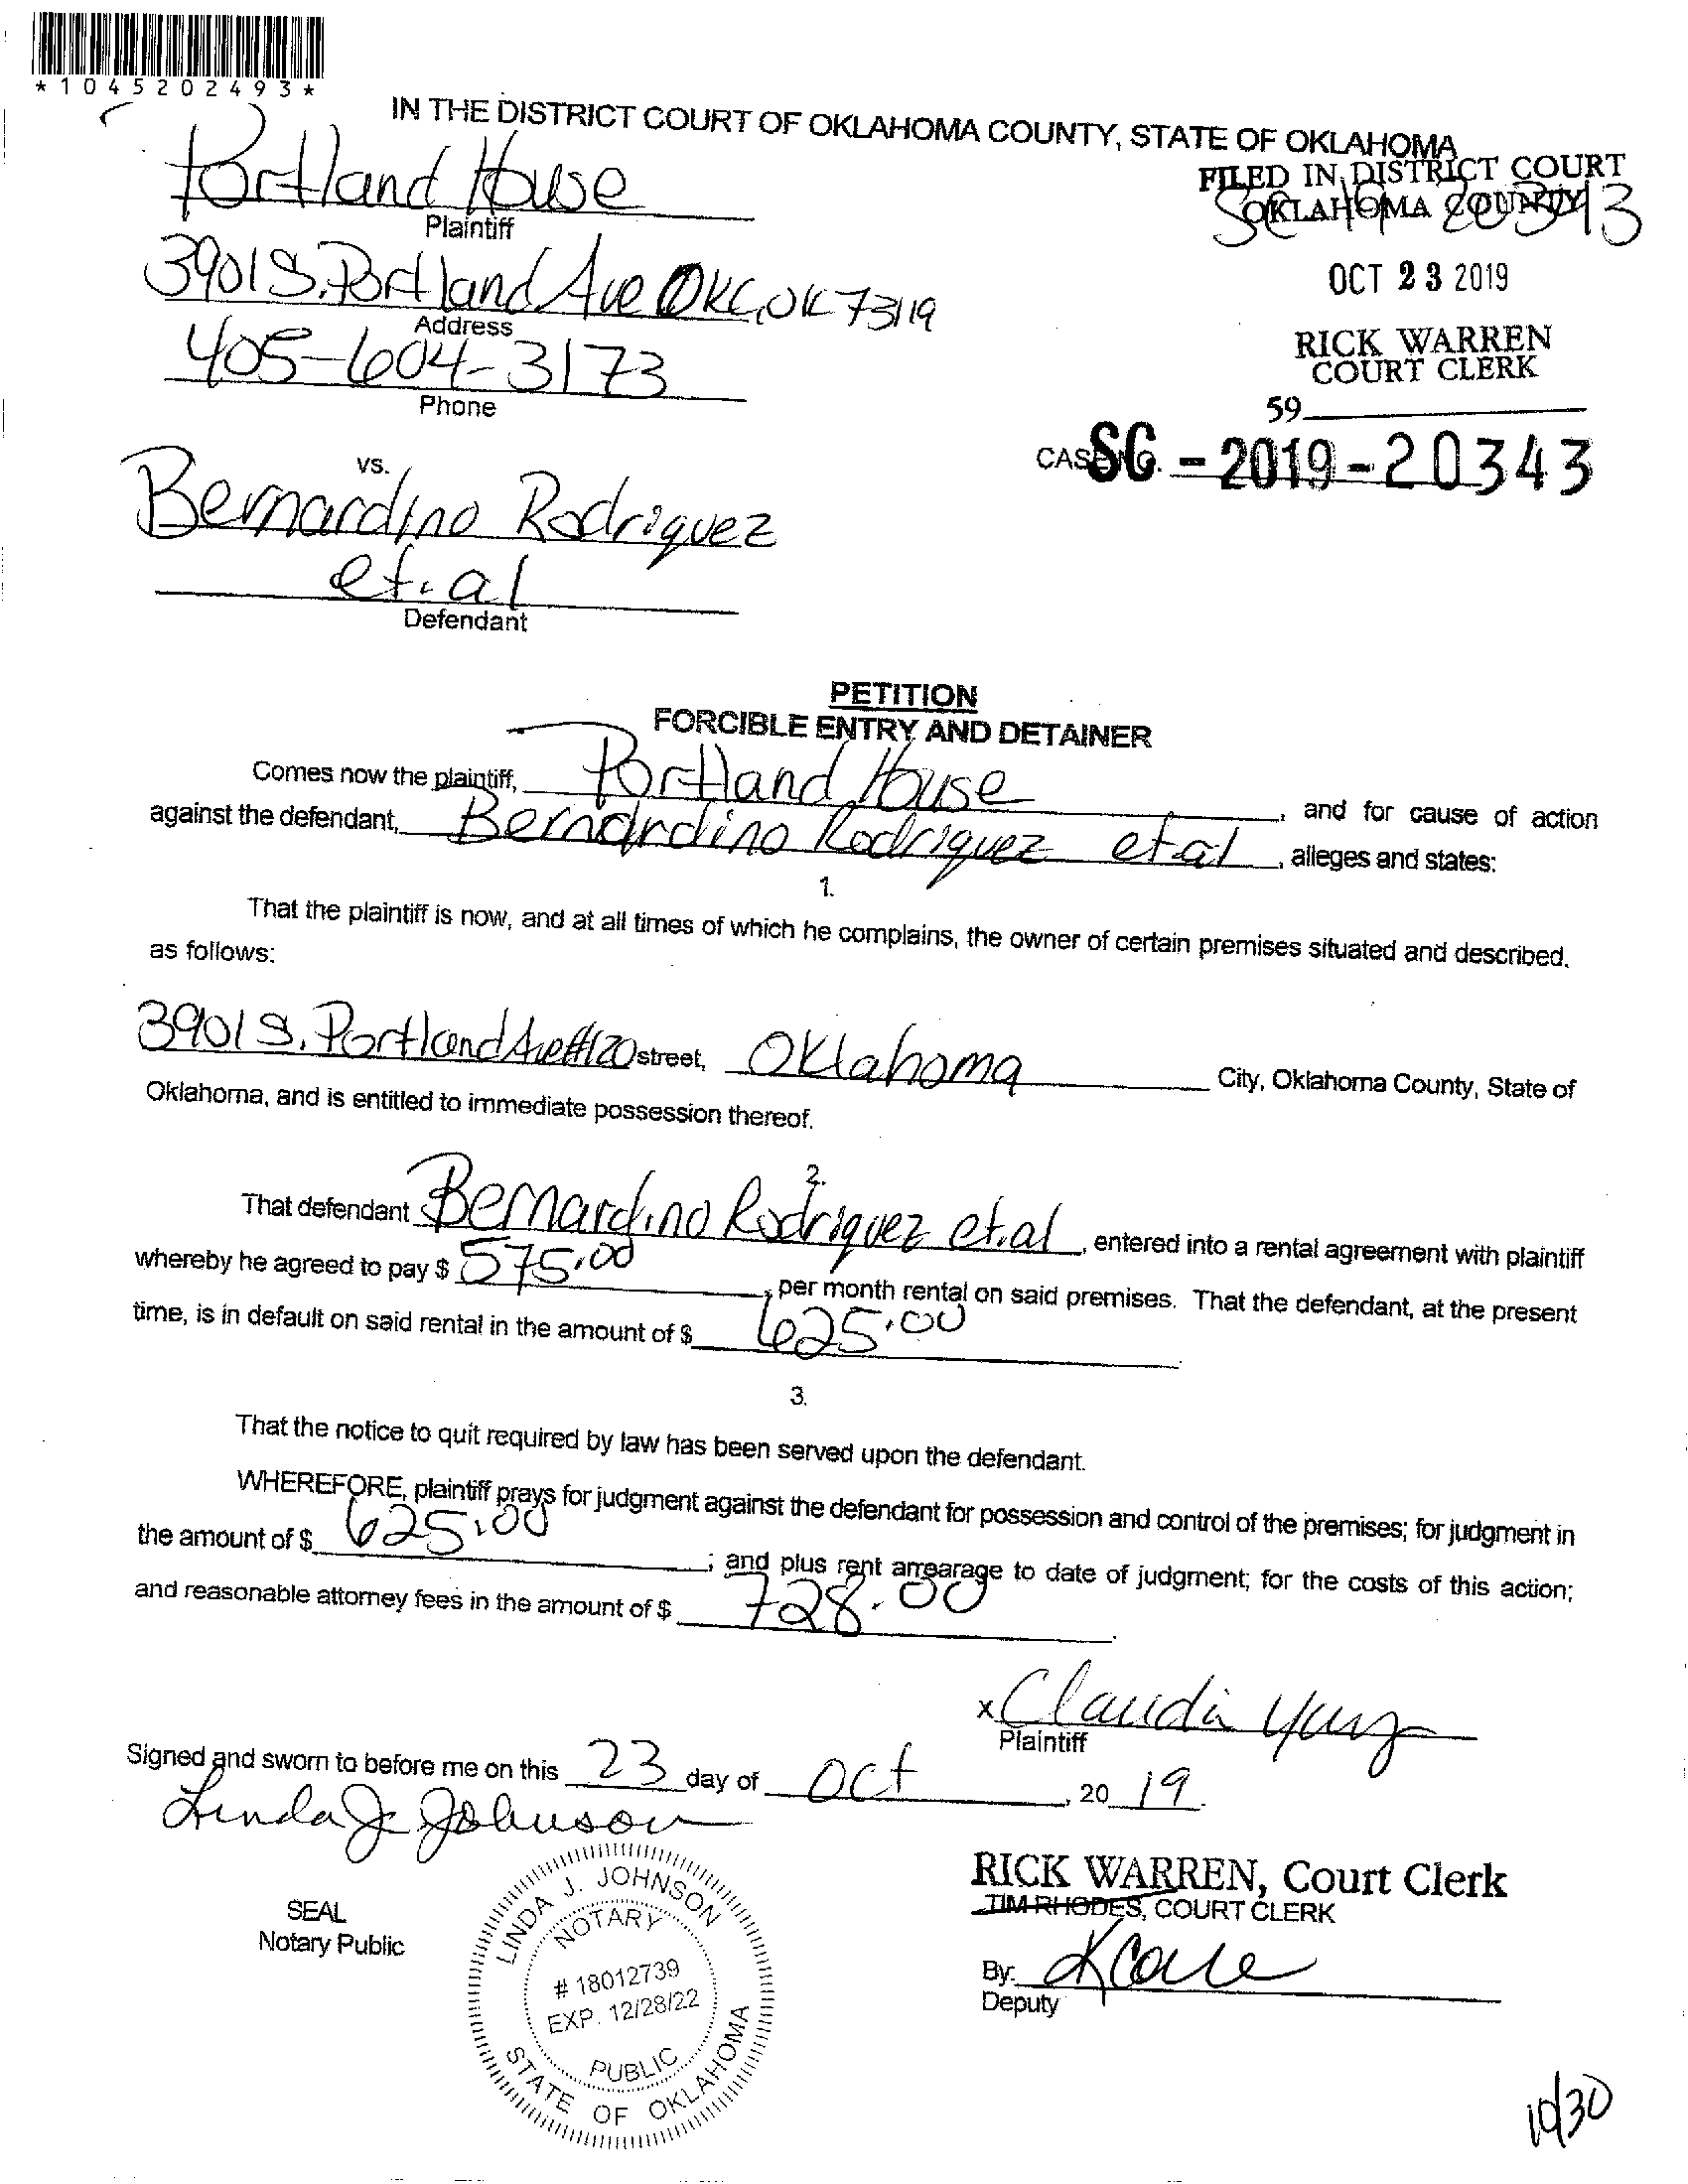 *1045202493*
IN THE DISTRICT COURT OF OKLAHOMA COUNTY, STATE OF OKLAHOMA
FILED IN DISTRICT COURT
OKLAHOMA COUNTY
Portland House
Plaintiff
3901 S. Portland Ave OKC, OK 73119
Address
405-604-3173
Phone
OCT 23 2019
RICK WARREN
COURT CLERK
59
CASE NO. SC - 2019 - 20343
vs.
Bernardino Rodriguez
et. al
Defendant
PETITION
FORCIBLE ENTRY AND DETAINER
Comes now the plaintiff, Portland House, and for cause of action
against the defendant, Bernardino Rodriguez et al, alleges and states:
1.
That the plaintiff is now, and at all times of which he complains, the owner of certain premises situated and described.
as follows:
3901 S. Portland Ave #120 street, Oklahoma City, Oklahoma County, State of
Oklahoma, and is entitled to immediate possession thereof.
2.
That defendant Bernardino Rodriguez et. al, entered into a rental agreement with plaintiff
whereby he agreed to pay $ 575.00, per month rental on said premises. That the defendant, at the present
time, is in default on said rental in the amount of $ 625.00
3.
That the notice to quit required by law has been served upon the defendant.
WHEREFORE, plaintiff prays for judgment against the defendant for possession and control of the premises; for judgment in
the amount of $ 625.00; and plus rent arrearage to date of judgment; for the costs of this action;
and reasonable attorney fees in the amount of $ 728.00.
x Claudia
Plaintiff
Signed and sworn to before me on this 23 day of Oct, 20 19.
Linda J Johnson
SEAL
Notary Public
LINDA J. JOHNSON
NOTARY
# 18012739
EXP. 12/28/22
PUBLIC
STATE OF OKLAHOMA
RICK WARREN, Court Clerk
TIM RHODES, COURT CLERK
By:
Deputy
10/30